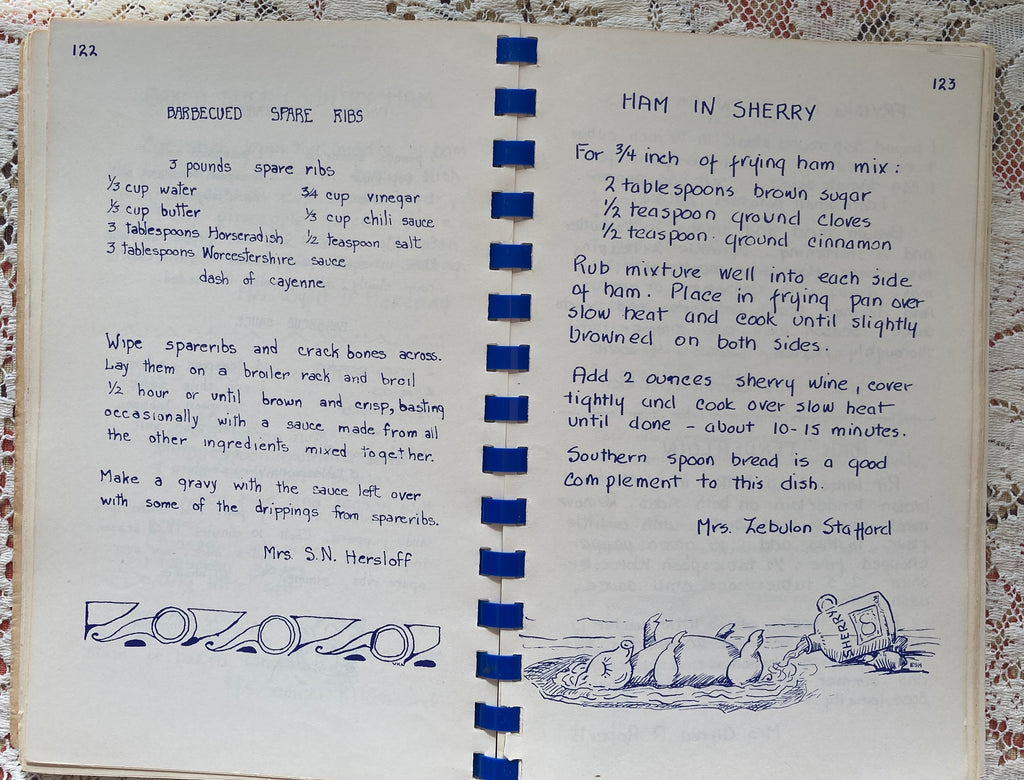 122
BARBECUED SPARE RIBS
3 pounds spare ribs
1/3 cup water 3/4 cup vinegar
1/3 cup butter 1/3 cup chili sauce
3 tablespoons Horseradish 1/2 teaspoon salt
3 tablespoons Worcestershire sauce
dash of cayenne
Wipe spareribs and crack bones across.
Lay them on a broiler rack and broil
1/2 hour or until brown and crisp, basting
occasionally with a sauce made from all
the other ingredients mixed together.
Make a gravy with the sauce left over
with some of the drippings from spareribs.
Mrs. S.N. Hersloff
123
HAM IN SHERRY
For 3/4 inch of frying ham mix:
2 tablespoons brown sugar
1/2 teaspoon ground cloves
1/2 teaspoon ground cinnamon
Rub mixture well into each side
of ham. Place in frying pan over
slow heat and cook until slightly
browned on both sides.
Add 2 ounces sherry wine, cover
tightly and cook over slow heat
until done - about 10-15 minutes.
Southern spoon bread is a good
complement to this dish.
Mrs. Zebulon Stafford
SHERRY